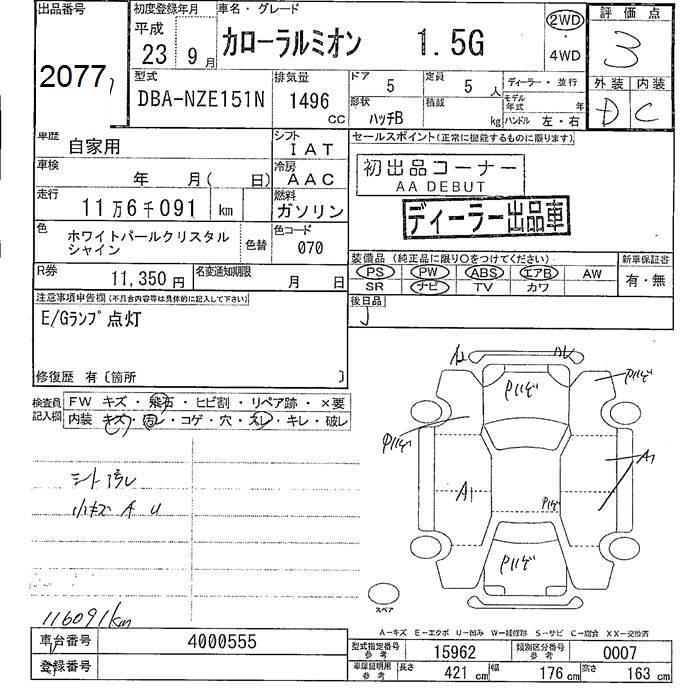 出品番号
2077
初度登録年月
平成
23 9月
車名・グレード
カローラルミオン 1.5G
2WD
・
4WD
評価点
3
外装 内装
D C
型式
DBA-NZE151N
排気量
1496
CC
ドア 5
定員 5 人
形状 ハッチB
積載 kg
ディーラー・並行
モデル年式 年
ハンドル 左・右
車歴 自家用
シフト IAT
車検 年 月( 日)
冷房 AAC
走行 11万6千091 km
燃料 ガソリン
色 ホワイトパールクリスタル
シャイン
色替
色コード 070
R券 11,350円
名変通知期限 月 日
セールスポイント(正常に機能するものに限ります)
初出品コーナー
AA DEBUT
ディーラー出品車
装備品 (純正品に限り○をつけてください)
PS PW ABS エアB AW
SR ナビ TV カワ
新車保証書
有・無
後日品
注意事項申告欄(不具合内容等は具体的に記入して下さい)
E/Gランプ点灯
修復歴 有〔箇所 〕
検査員
記入欄
FW キズ・飛石・ヒビ割・リペア跡・×要
内装 キズ・汚レ・コゲ・穴・スレ・キレ・破レ
シート汚レ
小キズ A U
116091km
A1
A1
スペア
A-キズ E-エクボ U-凹み W-補修跡 S-サビ C-腐食 XX-交換済
車台番号 4000555
登録番号
型式指定番号
参考
15962
類別区分番号
参考
0007
車庫証明用
参考
長さ 421 cm 幅 176 cm 高さ 163 cm